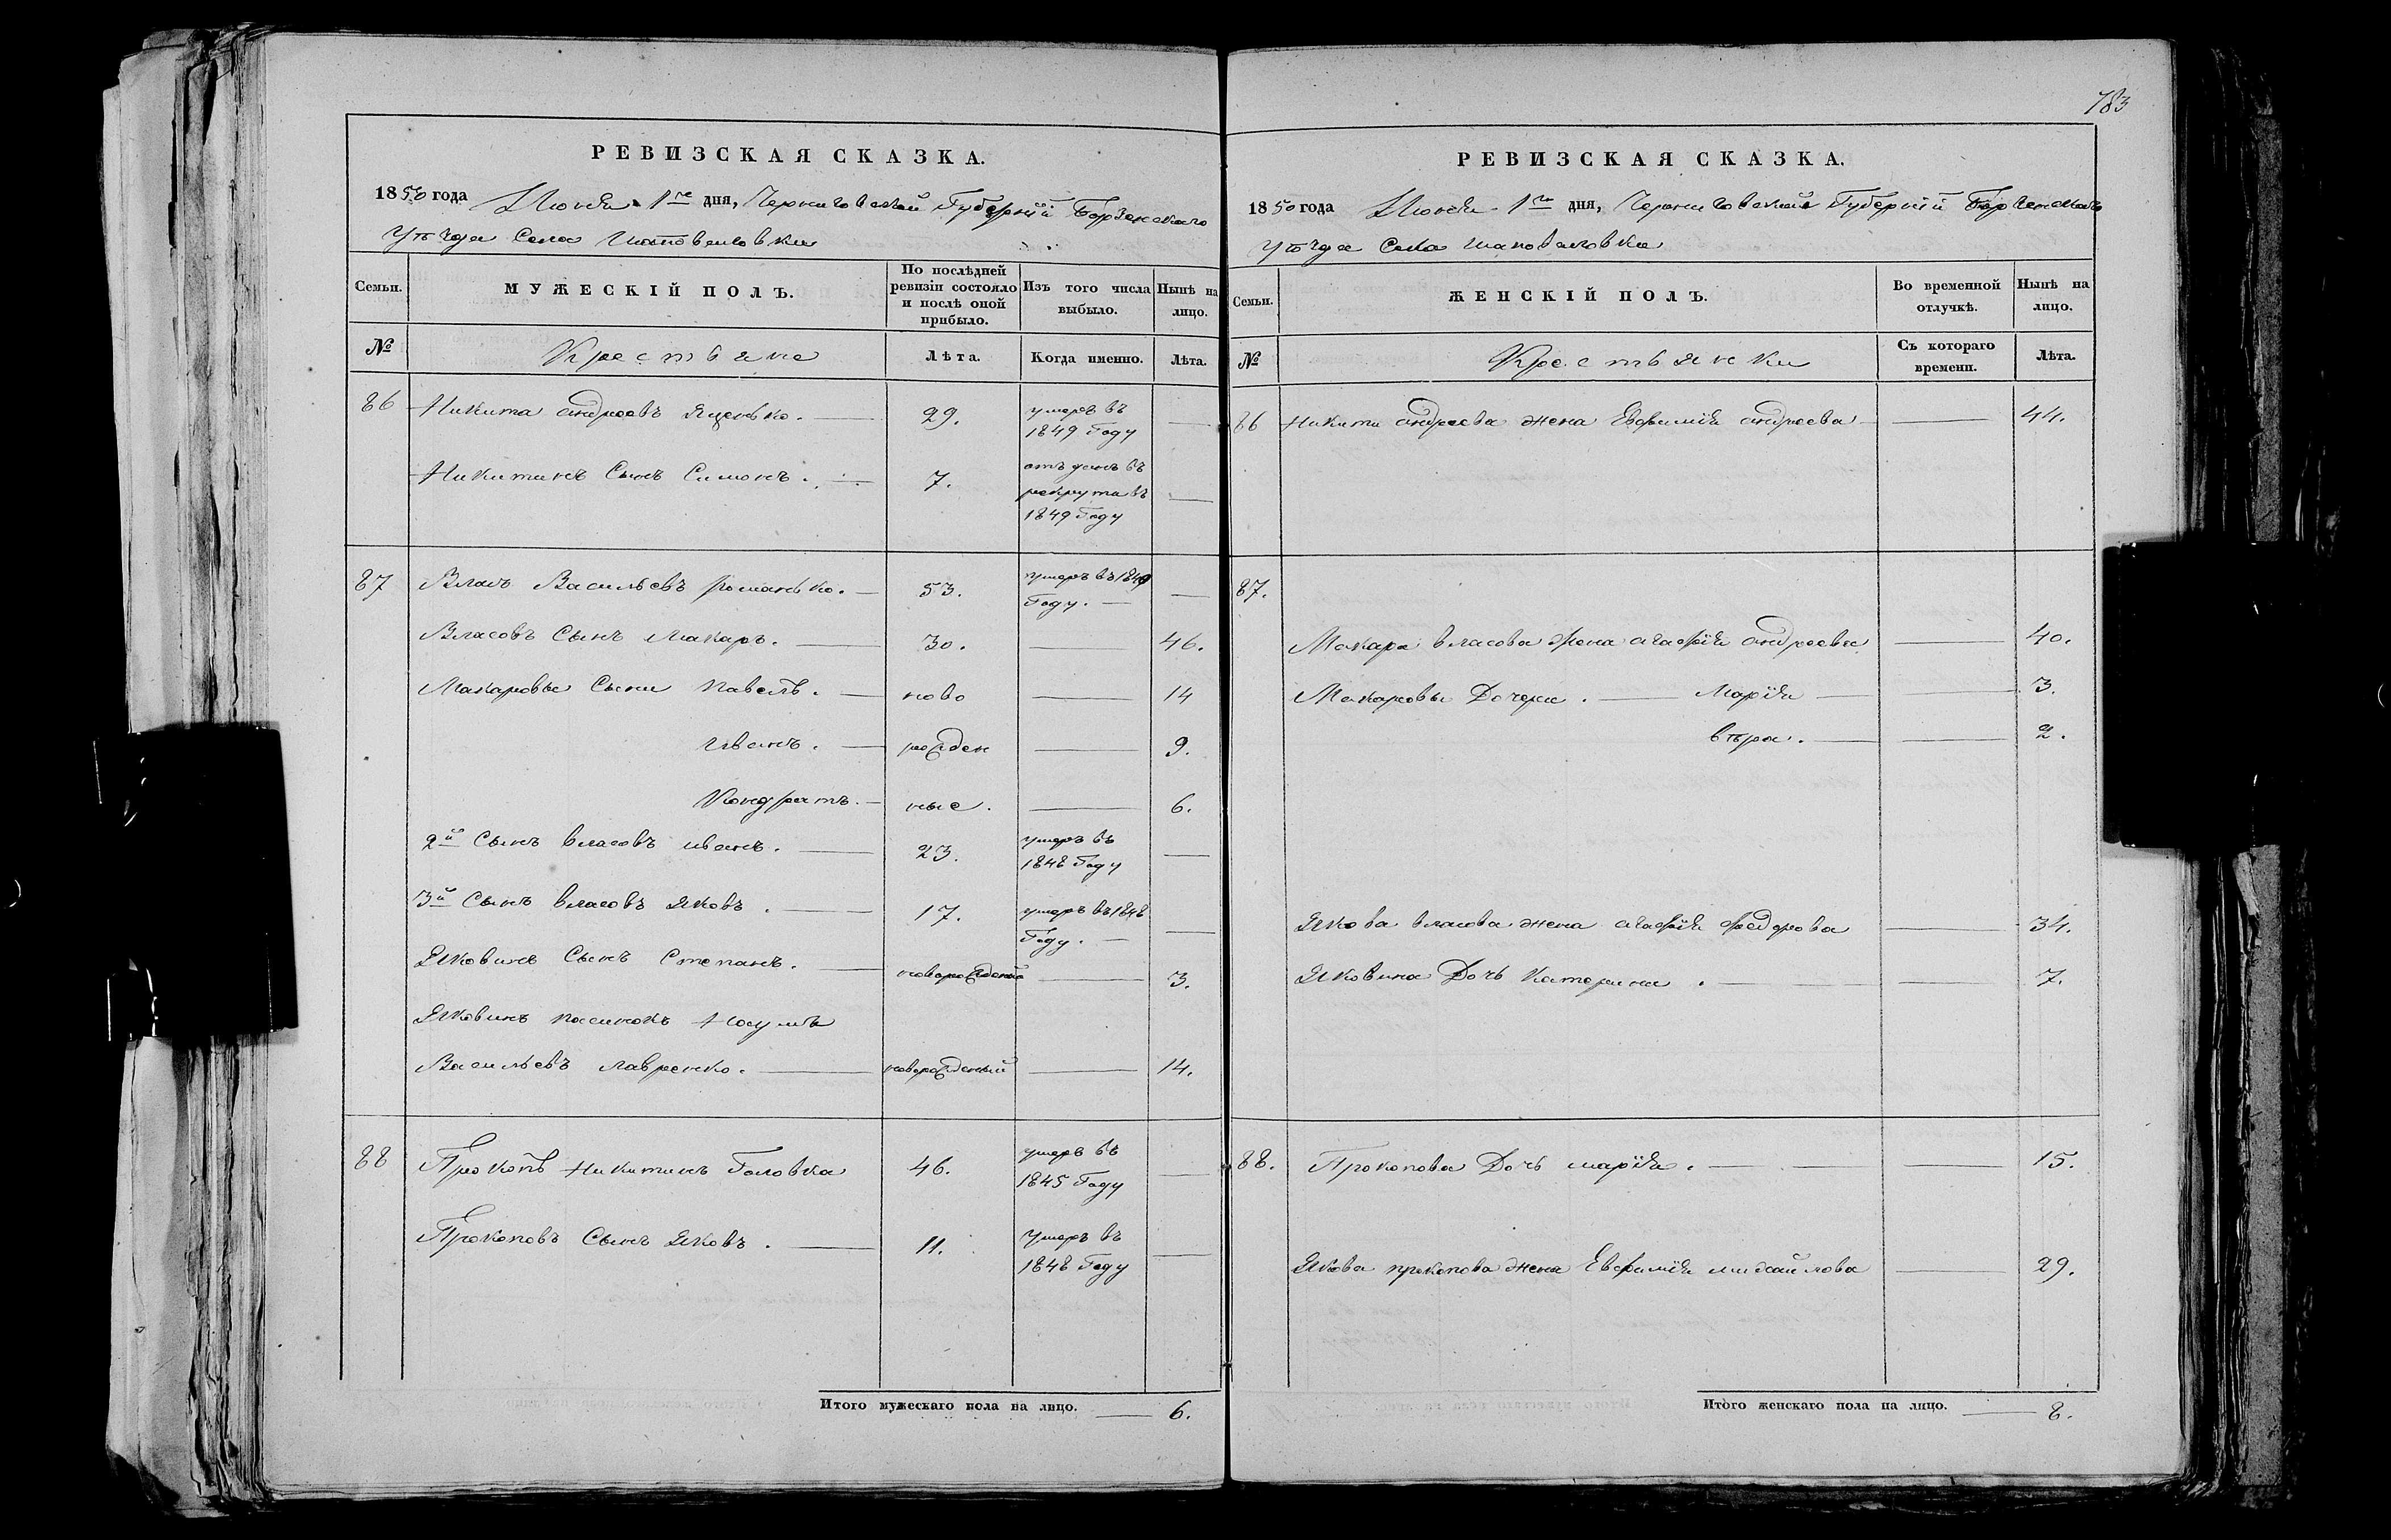 783
РЕВИЗСКАЯ СКАЗКА.
1850 года Июня 1го дня, Черниговской Губерніи Борзенскаго
Уѣзда Села Шаповаловки
Семьи. МУЖЕСКІЙ ПОЛЪ. По послѣдней ревизіи состояло и послѣ оной прибыло. Изъ того числа выбыло. Нынѣ на лицо.
№ Крестьяне Лѣта. Когда именно. Лѣта.
86 Никита андреевъ Яценко. 29. умеръ въ 1849 Году
Никитинъ Сынъ Симонъ. 7. отъ данъ въ рекрута въ 1849 Году
87 Власъ Васильевъ романько. 53. умеръ въ 1849 Году.
Власовъ Сынъ Макаръ. 30. 46.
Макаровы Сыны Павелъ. ново 14
Иванъ. рожден 9.
Кондратъ. ные. 6.
2й Сынъ власовъ иванъ. 23. умеръ въ 1848 Году
3й Сынъ власовъ Яковъ. 17. умеръ въ 1848 Году.
Яковинъ Сынъ Степанъ. новорожденный 3.
Яковинъ пасинокъ Наумъ
Васильевъ лавренко. новорожденный 14.
88 Прокопъ Никитинъ Головка 46. умеръ въ 1845 Году
Прокоповъ Сынъ Яковъ. 11. Умеръ въ 1848 Году
Итого мужескаго пола на лицо. 6.
РЕВИЗСКАЯ СКАЗКА.
1850 года Июня 1го дня, Черниговской Губерніи Борзенскаго
Уѣзда Села Шаповаловки
Семьи. ЖЕНСКІЙ ПОЛЪ. Во временной отлучкѣ. Нынѣ на лицо.
№ Крестьянки Съ котораго времени. Лѣта.
86 Никиты андреева жена Евфимія андреева 44.
87.
Макара власова жена агафія андреева 40.
Макаровы Дочери. Марія 3.
вѣра. 2.
Якова власова жена агафія федорова 34.
Яковина Дочь катерина. 7.
88. Прокопова Дочь марія. 15.
Якова прокопова жена Евфимія михайлова 29.
Итого женскаго пола на лицо. 8.